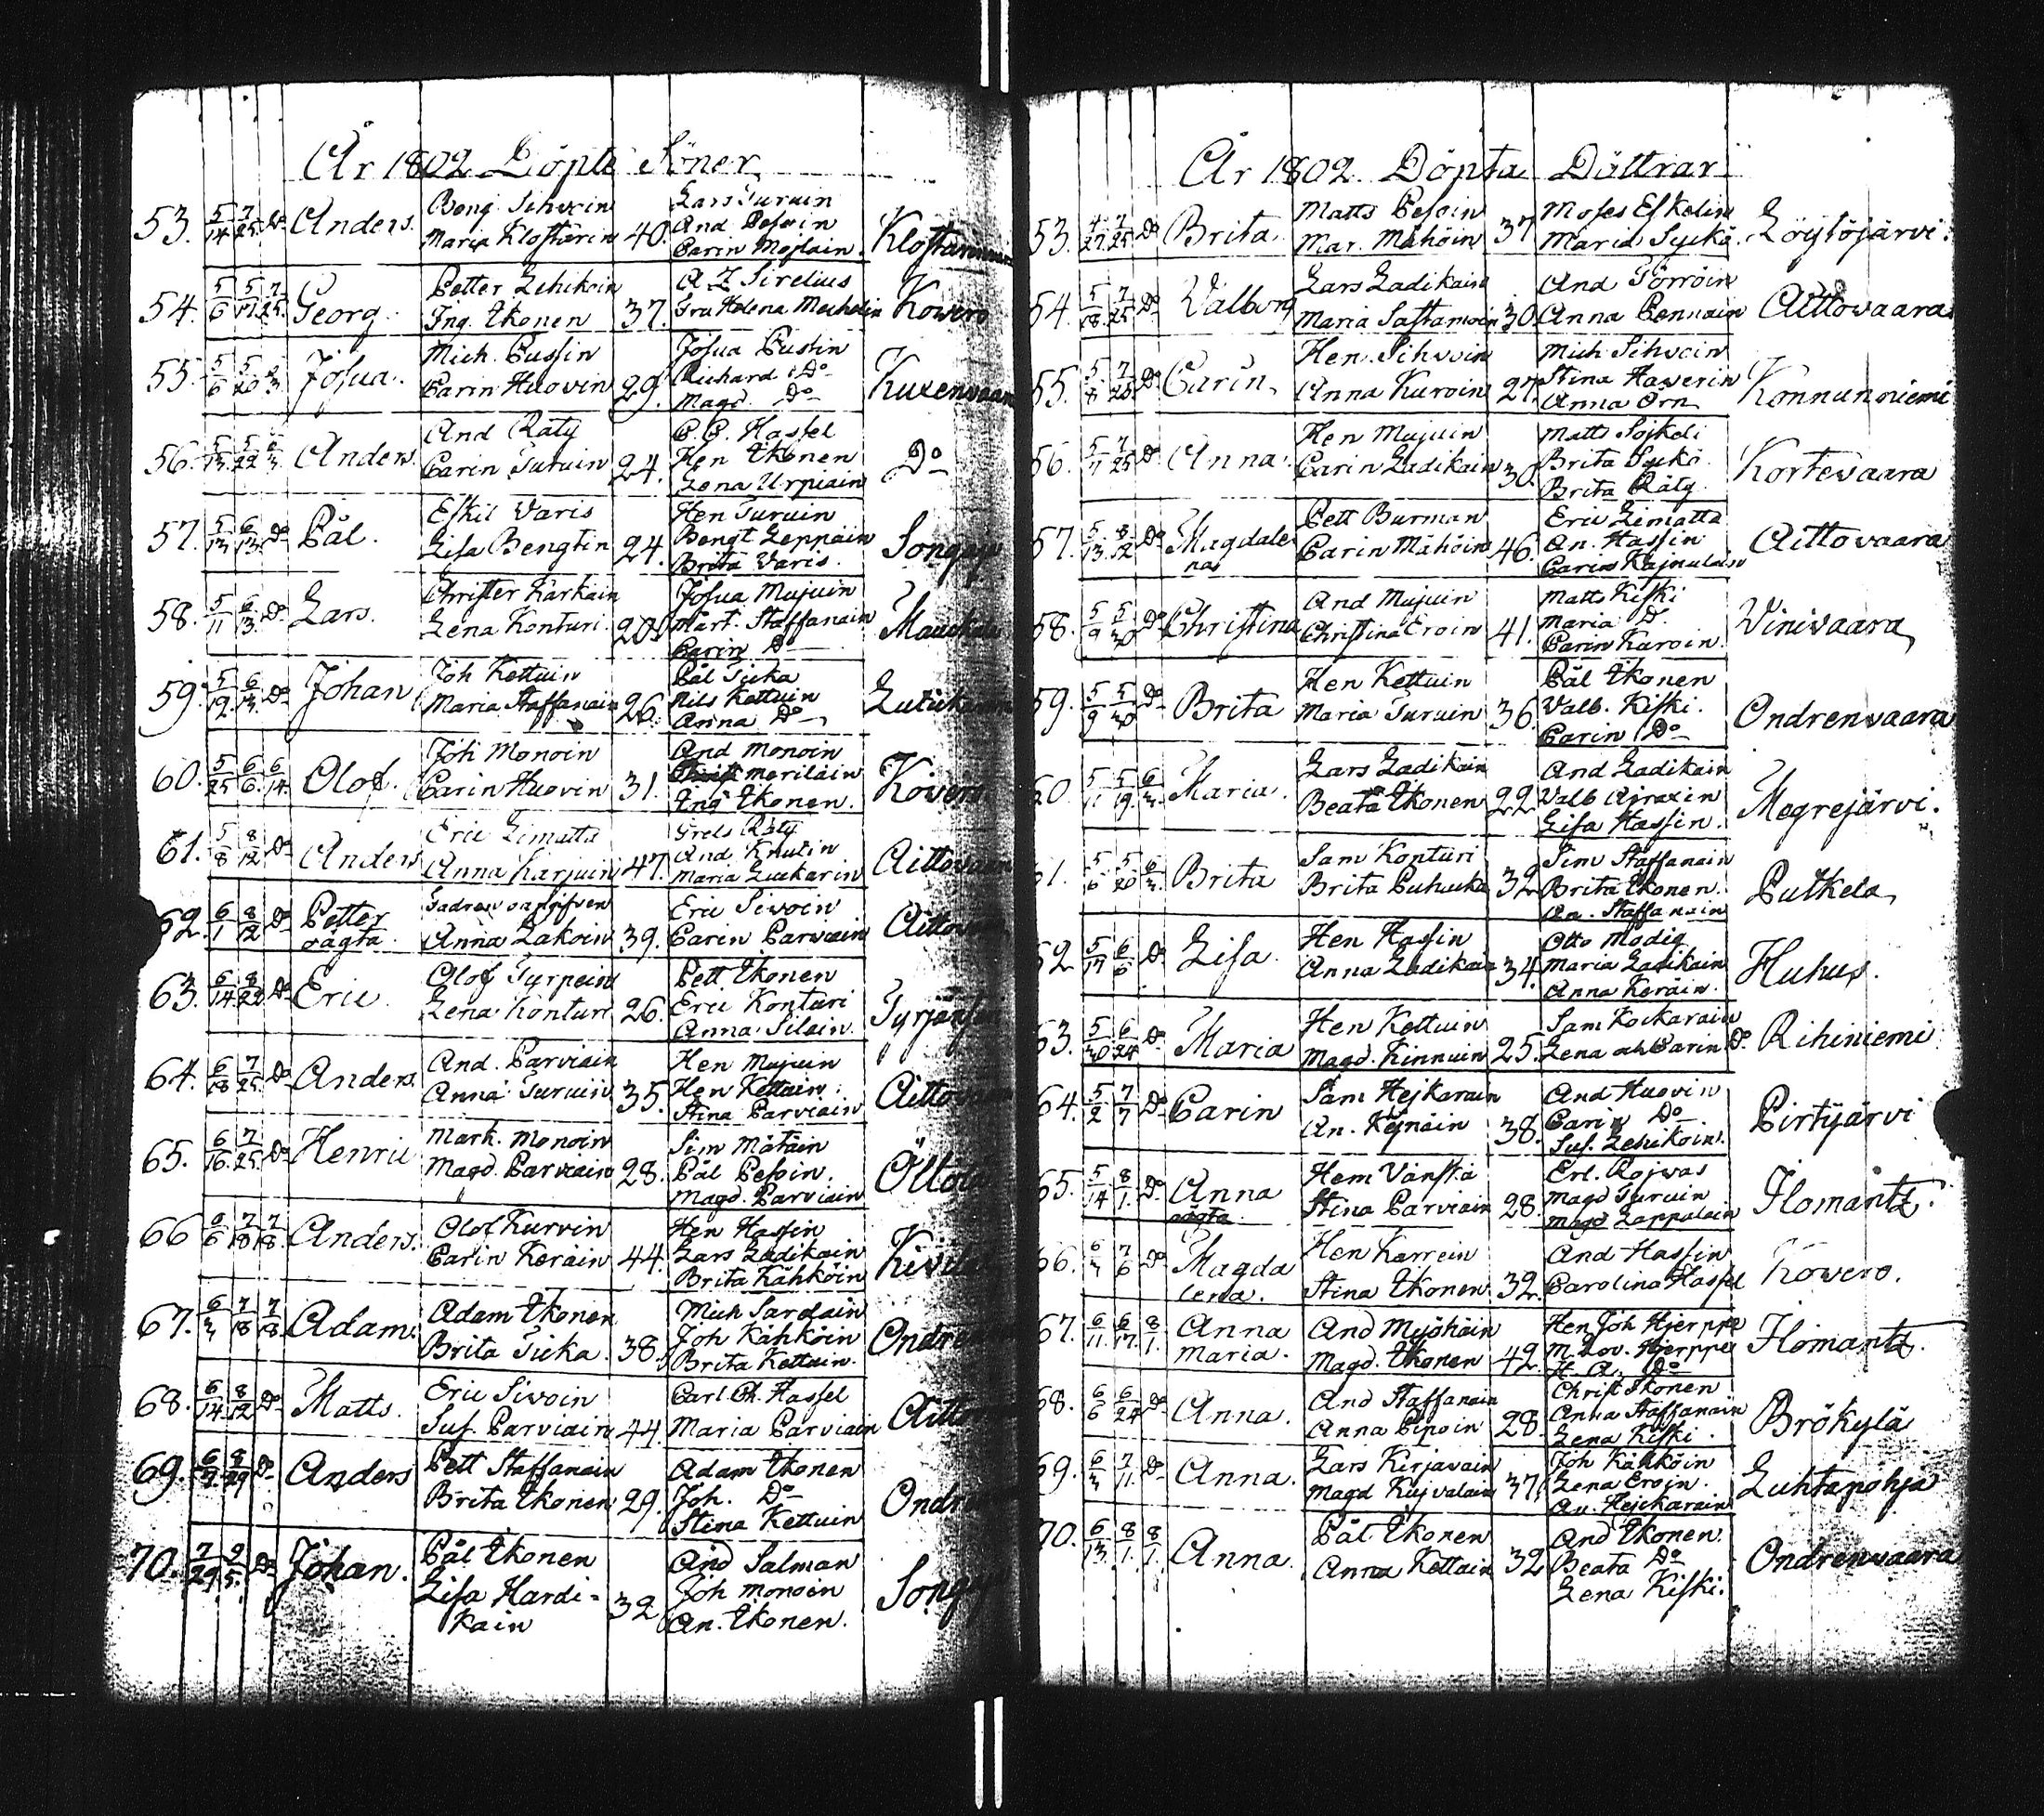 År 1802 Döpte Söner
53. 5/14 7/25 Do Anders. Beng. Sihvoin Maria Klostarin 40. Lars Turuin And Pesoin Carin Mojlain.
54. 5/6 5/17 7/25 Georg. Petter Lehikoin Ing. Ikonen 37. A Z Sirelius Fru Helena Mechelin Kowero
55. 5/6 5/20 6/3 Josua. Mich. Pussin Carin Huovin 29. Josua Pustin Richard Do Magd. Do
56. 5/13 5/22 6/3 Anders. And Räty Carin Turuin 24. C. C. Hassel Hen Ikonen Lena Urpiain Do
57. 5/13 6/13 Do Pål. Eskil Varis Lisa Bengtin 24. Hen Turuin Bengt Leppäin Brita Varis.
58. 5/11 6/13 Do Lars. Christer Karkain Lena Konturi. 20. Josua Mujuin Mart. Staffanain Carin Do
59. 5/12 6/13 Do Johan Joh Kettuin Maria Staffanain 26. Pål Sicka Nils Kettuin Anna Do
60. 5/25 6/6 6/14 Olof. Joh Monoin Carin Huovin 31. And Monoin moriläin Ing Ikonen. Kowero
61. 5/8 8/12 Do Anders Eric Limatta Anna Karjuin 47. Grels Räty And Knutin Maria Luckarin
62. 6/1 8/12 Do Petter oägta. Anna Lakoin 39. Eric Sivoin Carin Parviain
63. 6/14 8/22 Do Eric Olof Turpein Lena Konturi 26. Pett Ikonen Eric Konturi Anna Silain.
64. 6/18 7/25 Do Anders. And. Parviain Anna Turuin 35. Hen Mujuin Hen Kettuin Stina Parviain
65. 6/16 7/25 Do Henric Mart. Monoin Magd. Parviain 28. Sim Mätäin Pål Pesoin. Magd. Parviain
66 6/6 7/18 7/18 Anders. Olof Kurvin Carin Keräin 44. Hen Hassin Lars Ladikain Brita Kähköin
67. 6/3 7/18 7/18 Adam. Adam Ikonen Brita Sicka. 38. Mich Sardain Joh Kähköin Brita Kettuin.
68. 6/14 8/12 Do Matts. Eric Sivoin Sus. Parviain 44. Carl Ch. Hassel Maria Parviain
69. 6/7 8/29 Do Anders Pett Staffanain Brita Ikonen 29. Adam Ikonen Joh. Do Stina Kettuin
70. 7/29 9/5 Do Johan. Pål Ikonen Lisa Hardi- kain 32 And Salman Joh Monoin An. Ikonen.
År 1802. Döpta Döttrar
53. 4/27 7/25 Do Brita. Matts Pesoin Mar. Mähöin 37 Moses Eskelin Maria Syckö Löytöjärvi.
54. 5/18 7/25 Do Valborg Lars Ladikain Maria Sastamoin 30. And Törröin Anna Pennain Aittovaara
55. 5/8 7/25 Do Carin. Hen. Sihvoin Anna Kuroin 27. Mich Sihvoin Stina Haverin Anna Örn Konnunniemi
56. 5/7 7/25 Do Anna. Hen Mujuin Carin Ladikain 30. Matts Sojkeli Brita Syckö. Brita Räty. Kortevaara
57. 5/13 8/12 Do Magdale na Pett Burman Carin Mähöin 46. Eric Limatta An. Hassin Carin Kajnulain Aittovaara
58. 5/9 5/30 Do Christina And Mujuin Christina Eroin 41. Matts Kiski Maria Do Carin Karoin. Vinivaara
59. 5/9 5/30 Do Brita Hen Kettuin Maria Turuin 36. Pål Ikonen Valb. Kiski. Carin Do Ondrenvaara
60. 5/11 5/19 6/3 Maria. Lars Ladikain Beata Ikonen 22 And Ladikain Valb Ajraxin Lisa Hassin. Megrejärvi.
61. 5/6 5/20 6/3 Brita Sam Konturi Brita Puhucka 32 Sim Staffanain Brita Ikonen. An. Staffanain Putkela
62 5/17 6/6 Do Lisa. Hen Hassin Anna Ladikain 34. Otto Modig Maria Ladikain Anna Keräin. Huhus.
63. 5/30 6/24 Do Maria Hen Kettuin Magd. Kinnuin 25. Sam Kockarain Lena och Carin Do Rihiniemi
64. 5/2 7/7 Do Carin Sam Hejkarain An. Kejnäin 38. And Huovin Carin Do Sus. Lehikoin. Pirtijärvi
65. 5/14 8/1. Do Anna oägta. Hem Vänskä Stina Parviain 28. Erl. Rojvas Magd Turuin Magd Lappalain Ilomantz.
66. 6/3 7/6 Do Magda lena. Hen Karrein Stina Ikonen. 32. And Hassin Carolina Hassel Kowero.
67. 6/11. 6/17. 8/1. Anna Maria. And Myöhäin Magd. Ikonen 42. Hen Joh Hjerppe M. Lov. Hjerppe H. A. Do Ilomantz.
68. 6/6 6/24 Do Anna. And Staffanain Anna Pipoin 28. Christ Ikonen Anna Staffanain Lena Kiski. Brökylä
69. 6/3 7/11. Do Anna. Lars Kirjavain Magd Kujvalain 37. Joh Kähköin Lena Eroin. An. Hejckarain Luhtapohja
70. 6/13. 8/1. 8/1. Anna. Pål Ikonen Anna Kettuin 32 And Ikonen. Beata Do Lena Kiski. Ondrenvaara